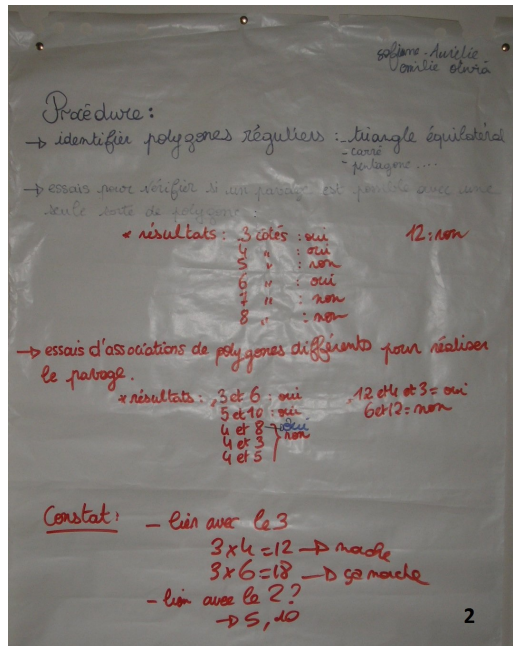 sofiane - Aurélie
emilie olivia
Procédure :
→ identifier polygones réguliers : - triangle équilatéral
- carré
- pentagone ....
→ essais pour vérifier si un pavage est possible avec une
seule sorte de polygone :
* résultats : 3 côtés : oui 12 : non
4 " : oui
5 " : non
6 " : oui
7 " : non
8 " : non
→ essais d'associations de polygones différents pour réaliser
le pavage.
* résultats : 3 et 6 : oui 12 et 4 et 3 = oui
5 et 10 : oui 6 et 12 = non
4 et 8 → oui
4 et 3 } non
4 et 5
Constat : - lien avec le 3
3 x 4 = 12 → marche
3 x 6 = 18 → ça marche
- lien avec le 2 ?
→ 5, 10
2